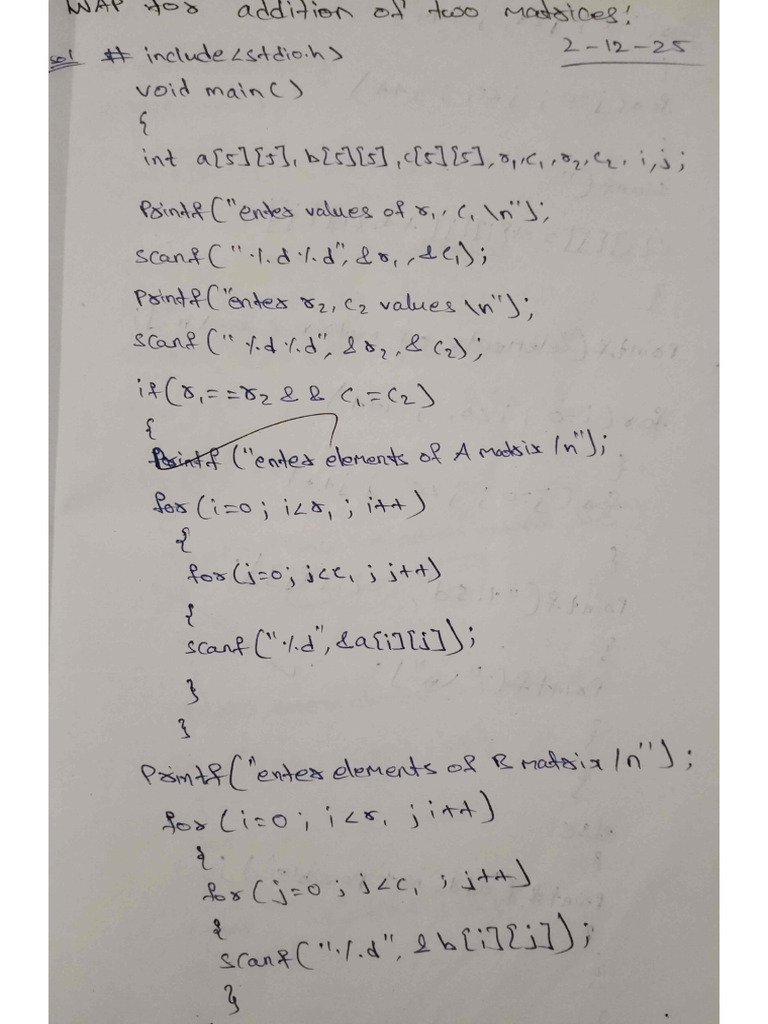 WAP for addition of two matrices!
2-12-25
sol # include<stdio.h>
void main()
{
int a[5][5], b[5][5], c[5][5], r1, c1, r2, c2, i, j;
Printf("enter values of r1, c1 \n");
scanf("%d%d", &r1, &c1);
Printf("enter r2, c2 values \n");
scanf("%d%d", &r2, &c2);
if(r1==r2 && c1=c2)
{
Printf ("enter elements of A matrix /n");
for(i=0; i<r1; i++)
{
for(j=0; j<c1; j++)
{
scanf("%d", &a[i][j]);
}
}
Printf("enter elements of B matrix /n");
for(i=0; i<r1; i++)
{
for(j=0; j<c1; j++)
{
scanf("%d", &b[i][j]);
}